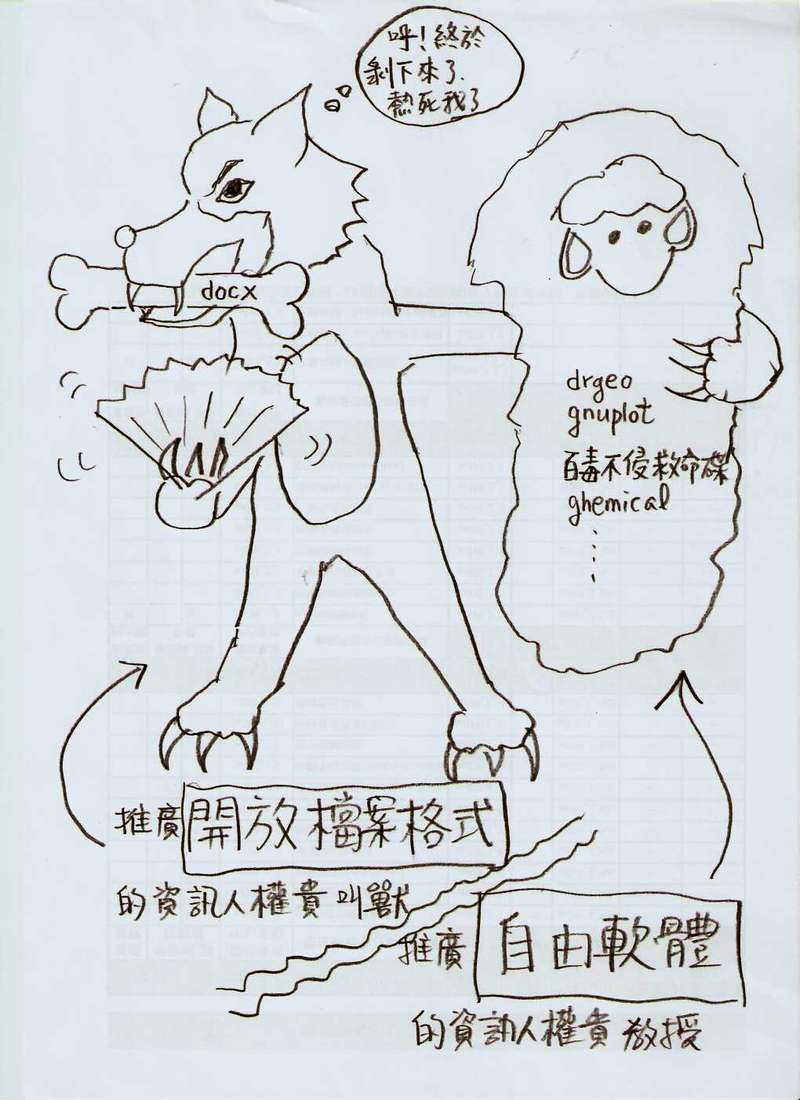 呼！終於
剝下來了.
熱死我了
docx
drgeo
gnuplot
百毒不侵救命碟
ghemical
......
推廣 開放檔案格式
的資訊人權貴叫獸
推廣 自由軟體
的資訊人權貴教授